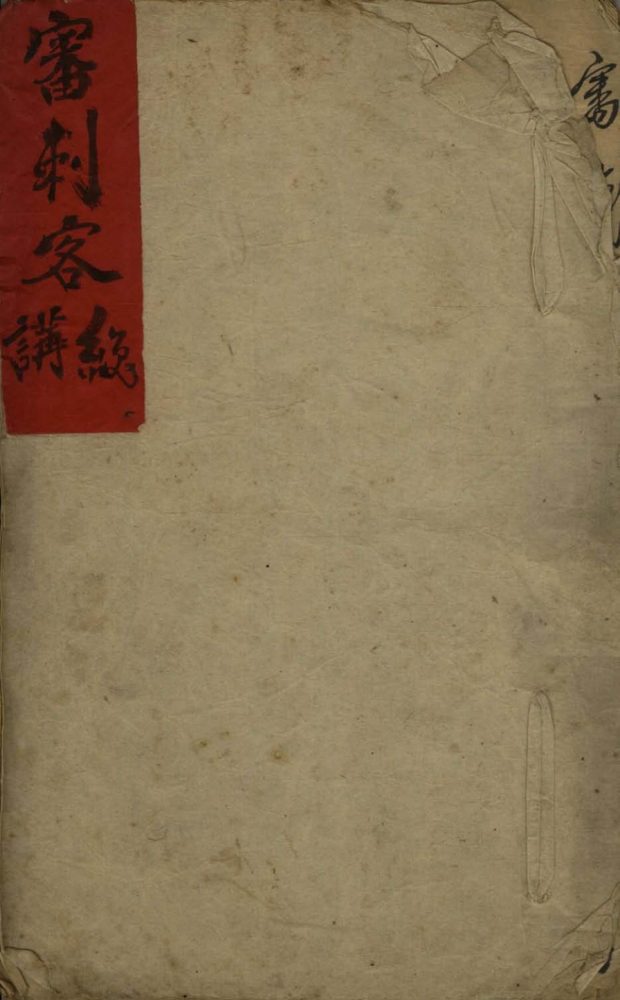 審
審刺客
總講